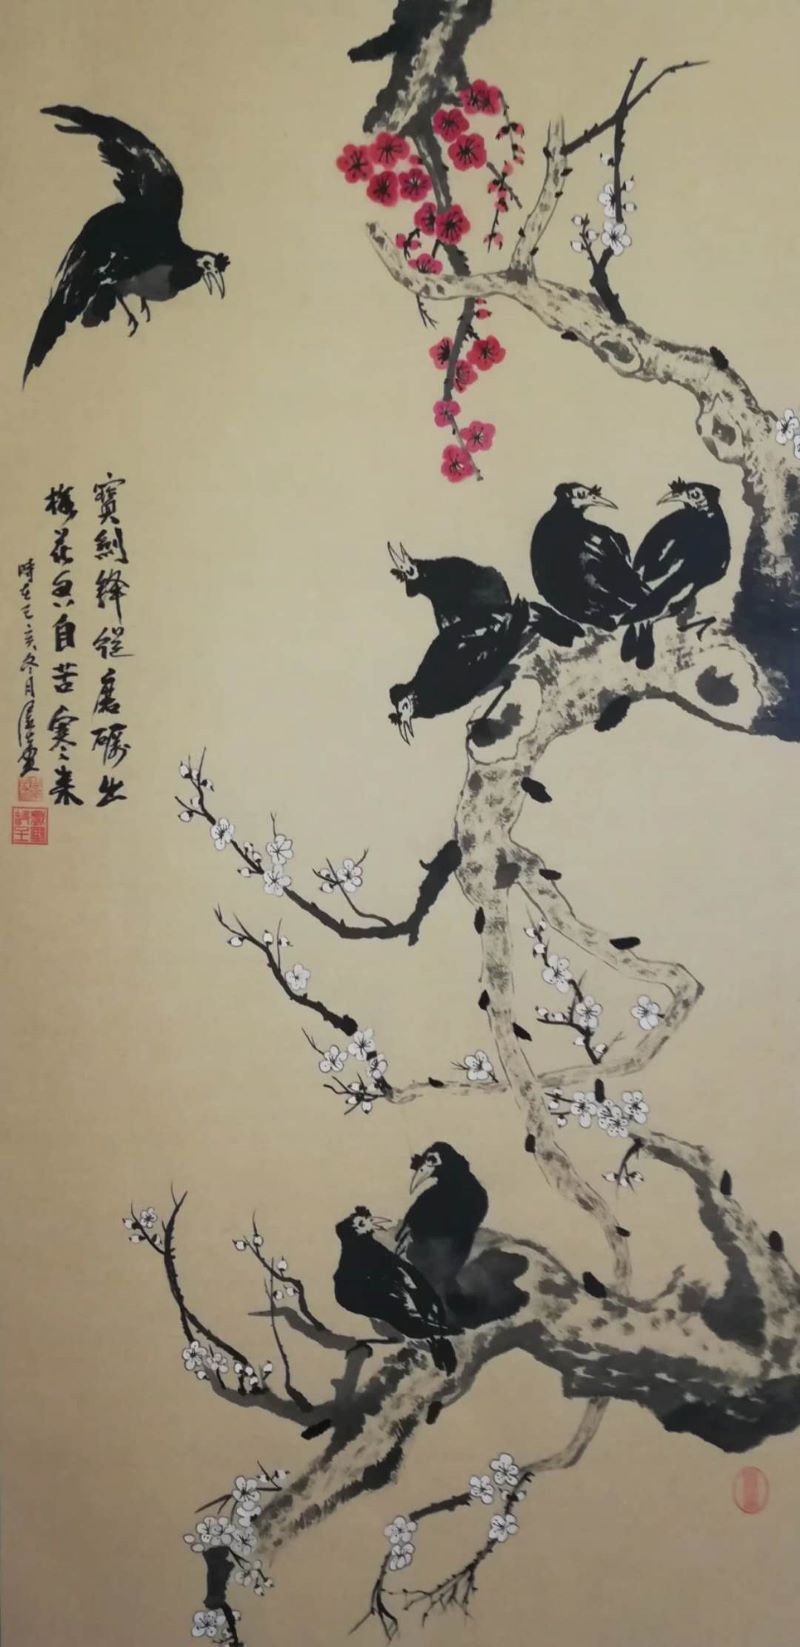 寳劍鋒從磨礪出
梅花香自苦寒來
時在己亥冬月